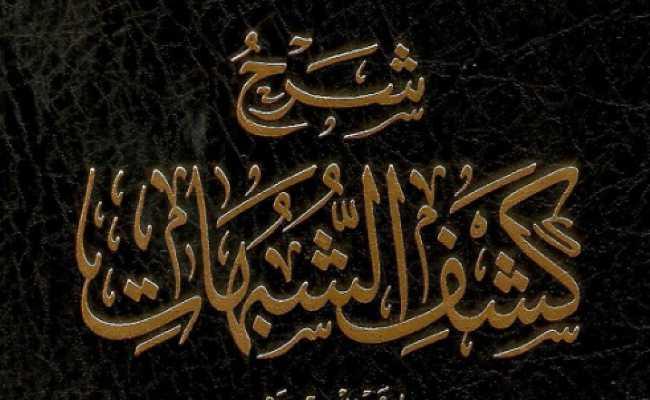 شَرْحُ
كَشْفِ الشُّبُهَاتِ